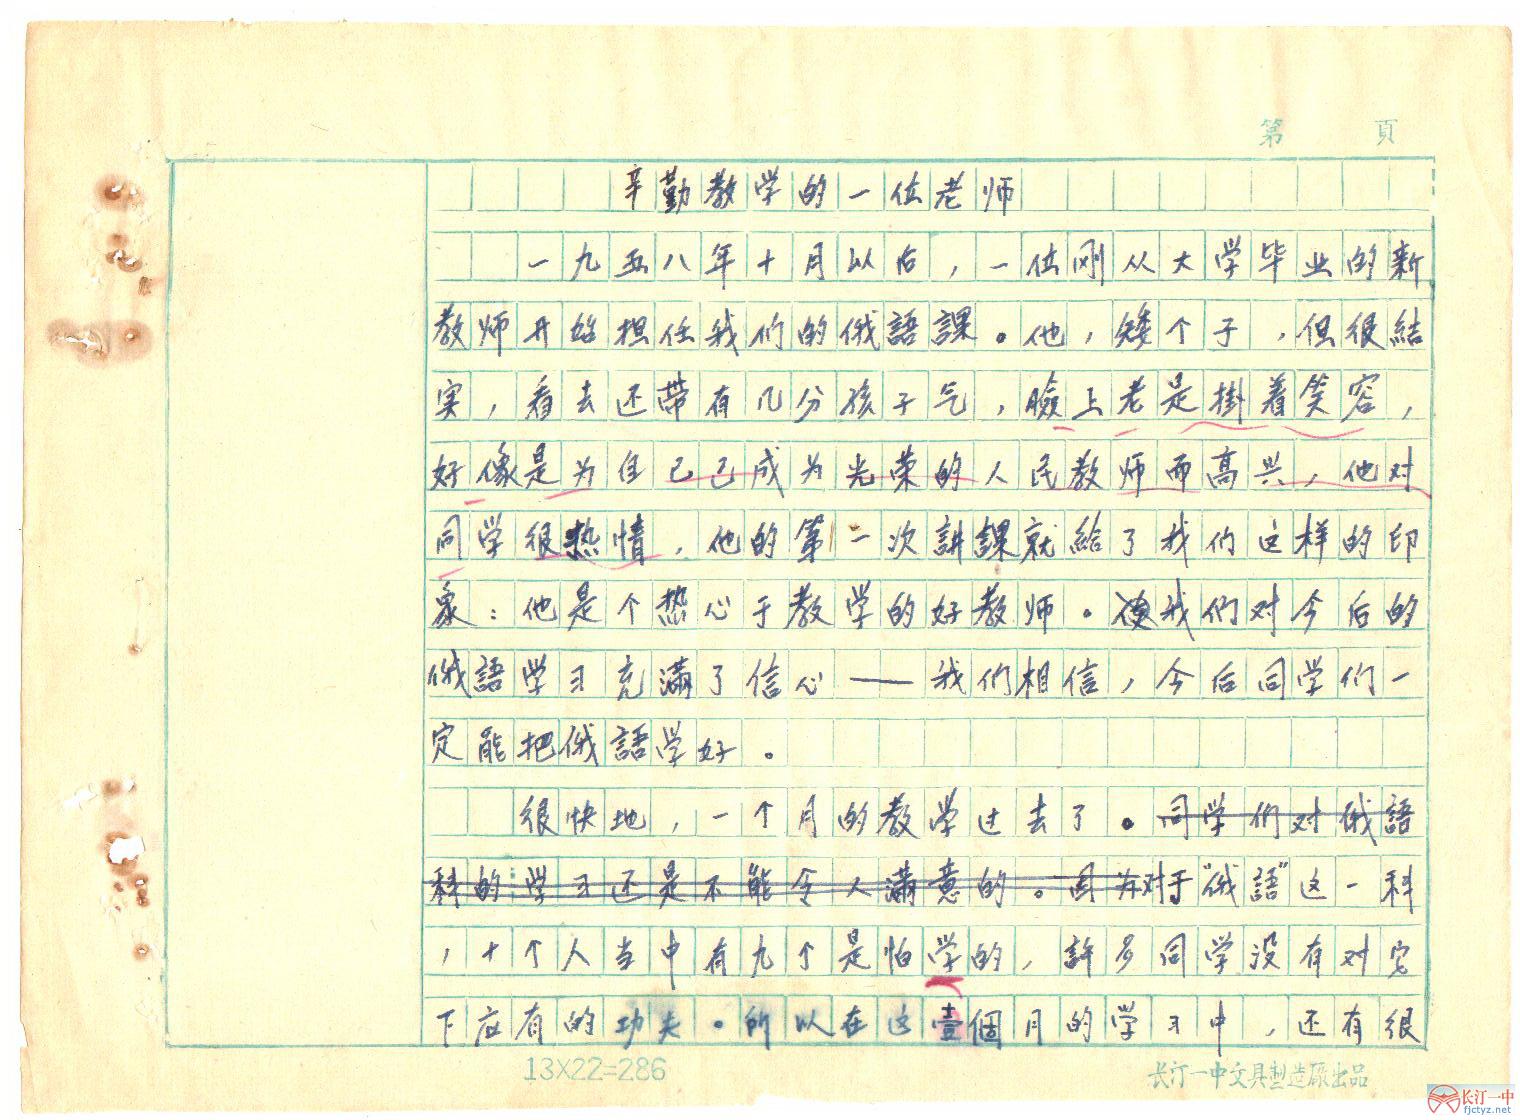 第 頁
辛勤教学的一位老师
一九五八年十月以后，一位刚从大学毕业的新
教师开始担任我们的俄語課。他，矮个子，但很結
实，看去还带有几分孩子气，臉上老是掛着笑容，
好像是为自己已成为光荣的人民教师而高兴，他对
同学很热情，他的第一次講課就給了我们这样的印
象：他是个热心于教学的好教师。使我们对今后的
俄語学习充滿了信心——我们相信，今后同学们一
定能把俄語学好。
很快地，一个月的教学过去了。同学们对俄語
科的学习还是不能令人滿意的。因为对于“俄語”这一科
，十个人当中有九个是怕学的，許多同学没有对它
下应有的功夫。所以在这壹個月的学习中，还有很
13X22=286
长汀一中文具製造廠出品
长汀一中
fjctyz.net